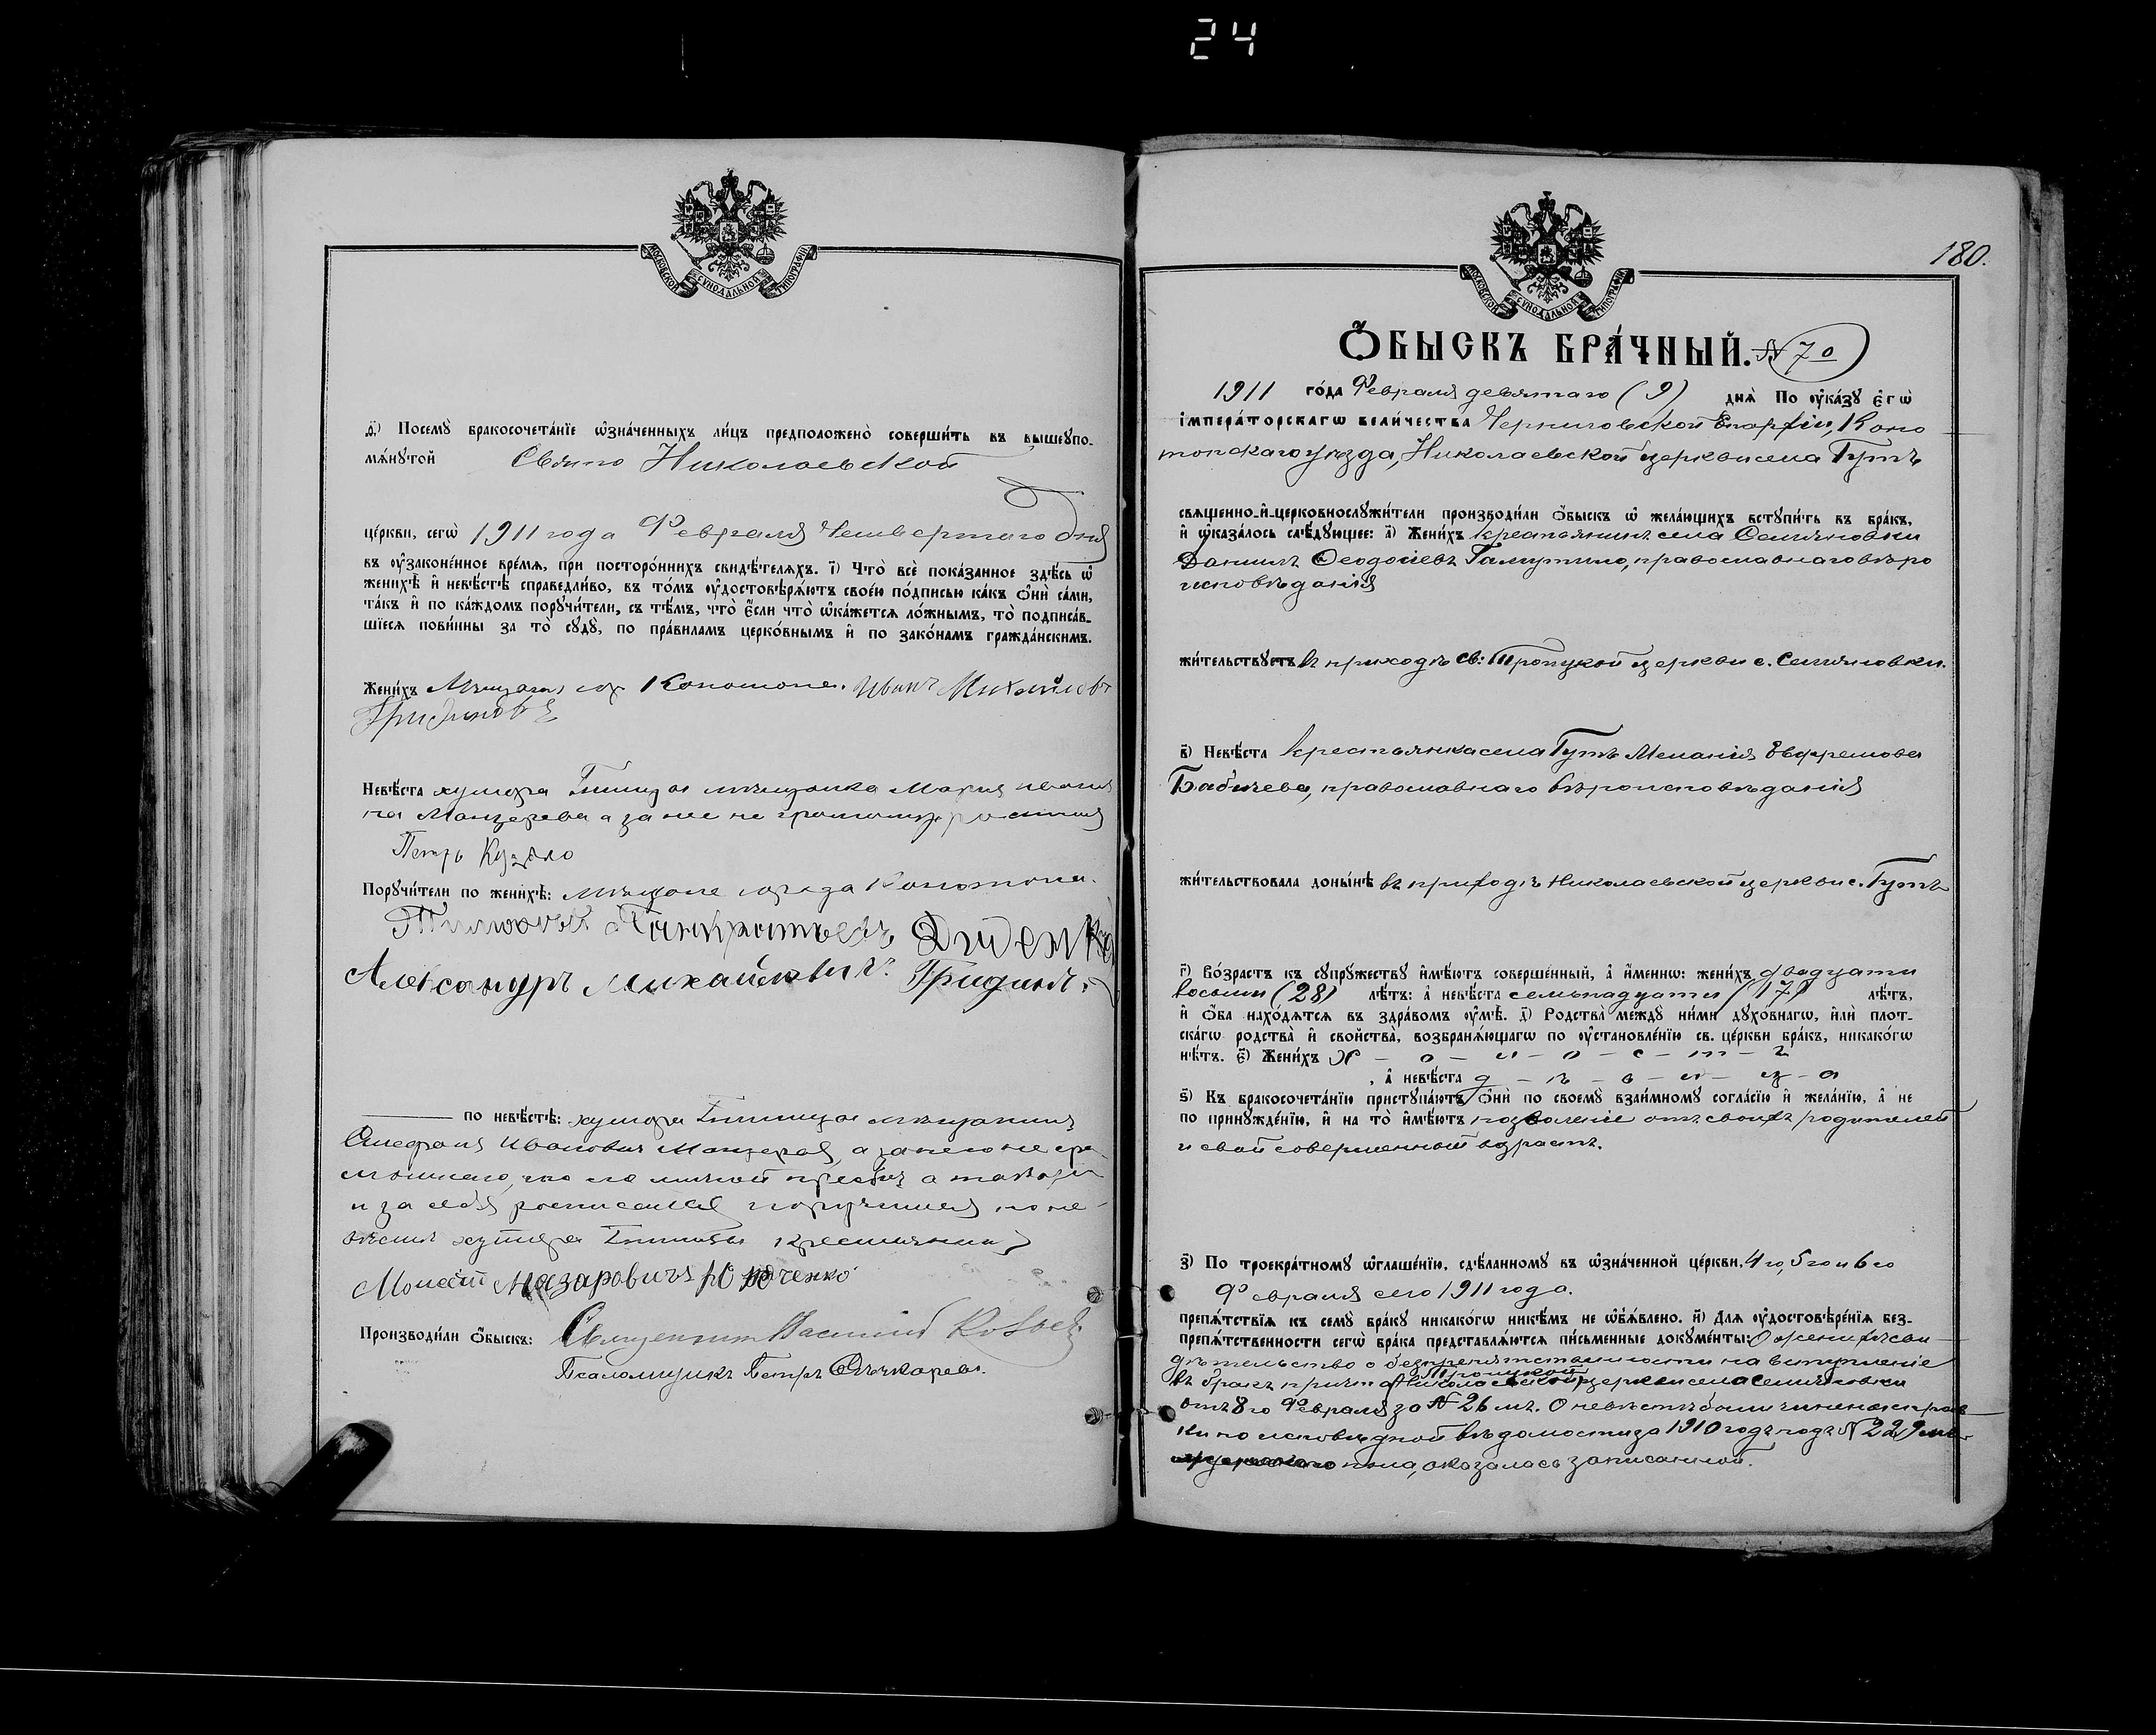 24
МОСКОВСКОЙ СУНОДАЛЬНОЙ ТИПОГРАФІИ
д҃і) Посемꙋ̀ бракосочета́нїе ѡ҆зна́ченныхъ ли́цъ предположено̀ соверши́ть въ вышеꙋпо-
мѧ́нꙋтой Свято Николаевской
це́ркви, сегѡ̀ 1911 года Февраля Четвертаго дня
въ ᲂу҆зако́ненное вре́мѧ, при посторо́ннихъ свидѣ́телѧхъ. і҃) Что̀ всѐ пока́занное здѣ́сь ѡ҆
женихѣ̀ и҆ невѣ́стѣ справедли́во, въ то́мъ ᲂу҆достовѣрѧ́ютъ свое́ю по́дписью ка́къ ѻ҆нѝ са́ми,
та́къ и҆ по ка́ждомъ порꙋчи́тели, съ тѣ́мъ, что̀ є҆́сли что̀ ѡ҆ка́жетсѧ ло́жнымъ, то̀ подписа́в-
шїесѧ пови́нны за то̀ сꙋдꙋ̀, по пра́виламъ церко́внымъ и҆ по зако́намъ гражда́нскимъ.
Жени́хъ Мѣщан. гор. Конотопа. Иванъ Михайловъ
Гридиновъ
Невѣ́ста хутора мѣщанка Мария Ивано
на а за нее не
Петръ
Порꙋчи́тели по женихѣ̀: мѣщане города Конотопа.
Тимофей Панкратьевъ Диденко
Александръ Михайловичъ Гридинъ
по невѣ́стѣ: хутора мѣщанинъ
Стефанъ Ивановичъ а за него не гра
мотнаго, по его личной просьбѣ а также
и за себя росписался поручитель по не-
вѣстѣ хутора крестьянинъ
Моисей Назаровичъ Юрченко
Производи́ли ѻ҆́быскъ: Священникъ Василій
Псаломщикъ Петръ Сѣчкаревъ.
МОСКОВСКОЙ СУНОДАЛЬНОЙ ТИПОГРАФІИ
180.
Ѻ҆́БЫСКЪ БРА́ЧНЫЙ. № 70
1911 го́да Февраля девятаго (9) днѧ̀ По ᲂу҆ка́зꙋ є҆гѡ̀
і҆мпера́торскагѡ вели́чества Черниговской Епархіи, Коно
топскаго уѣзда, Николаевской церкви села Гутъ
свѧще́нно-и҆-церковнослꙋжи́тели производи́ли ѻ҆́быскъ ѡ҆ жела́ющихъ встꙋпи́ть въ бра́къ,
и҆ ѡ҆каза́лось слѣ́дꙋющее: а҃) Жени́хъ крестьянинъ села Семяновки
Даніилъ Ѳеодосіевъ православнаго вѣро
исповѣданія
жи́тельствꙋетъ въ приходѣ св: Троицкой церкви с. Семяновки.
в҃) Невѣ́ста крестьянка села Гутъ Меланія Евфремова
Бабичева, православнаго вѣроисповѣданія
жи́тельствовала доны́нѣ въ приходѣ Николаевской церкви с. Гутъ
г҃) Во́зрастъ къ сꙋпрꙋ́жествꙋ и҆мѣ́ютъ соверше́нный, а҆ и҆́меннѡ: жени́хъ двадцати
восьми (28) лѣ́тъ: а҆ невѣ́ста семьнадцати (17) лѣ́тъ,
и҆ ѻ҆́ба нахо́дѧтсѧ въ здра́вомъ ᲂу҆мѣ̀. д҃) Родства̀ междꙋ̀ ни́ми дꙋхо́внагѡ, и҆лѝ плот-
ска́гѡ родства̀ и҆ свойства̀, возбранѧ́ющагѡ по ᲂу҆становле́нїю св. це́ркви бра́къ, никако́гѡ
нѣ́тъ. є҃) Жени́хъ Х - о - л - о - с - т - ъ
, а҆ невѣ́ста д - ѣ - в - и - ц - а
ѕ҃) Къ бракосочета́нїю пристꙋпа́ютъ ѻ҆нѝ по своемꙋ̀ взаи́мномꙋ согла́сїю и҆ жела́нїю, а҆ не
по принꙋжде́нїю, и҆ на то̀ и҆мѣ́ютъ позволеніе отъ своихъ родителей
и свой совершенный возрастъ.
з҃) По троекра́тномꙋ ѡ҆глаше́нїю, сдѣ́ланномꙋ въ ѡ҆зна́ченной це́ркви, 4 го, 5 го и 6 го
Февраля сего 1911 года.
препѧ́тствїѧ къ семꙋ̀ бра́кꙋ никако́гѡ никѣ́мъ не ѡ҆б̾ѧ́влено. и҃) Длѧ ᲂу҆достовѣре́нїѧ без-
препѧ́тственности сегѡ̀ бра́ка представлѧ́ютсѧ пи́сьменные докꙋме́нты: О женихѣ сви
дѣтельство о безпрепятственности на вступленіе
Троицкой
въ бракъ причта церкви села Семяновки
отъ 8 го Февраля за № 26 мъ. О невѣстѣ были чинены справ
ки по исповѣдной вѣдомости за 1910 годъ подъ № 229
пола, оказалась записанной.